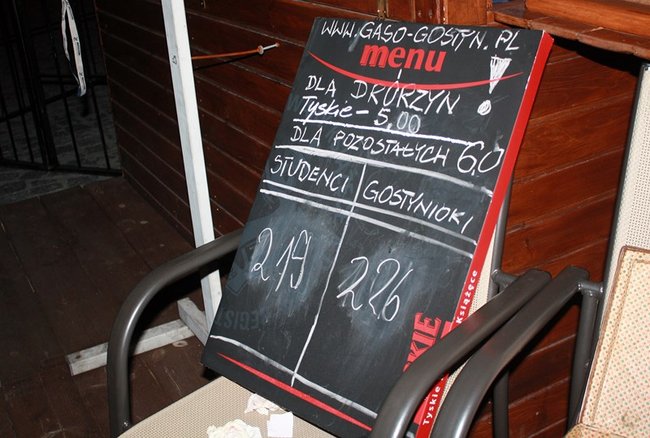 WWW.GASO-GOSTYN.PL
menu
DLA DRÓRZYN !
Tyskie - 5,00
DLA POZOSTAŁYCH 6,0
STUDENCI GOSTYNIOKI
219 226
KIE
Tyskie Książęce